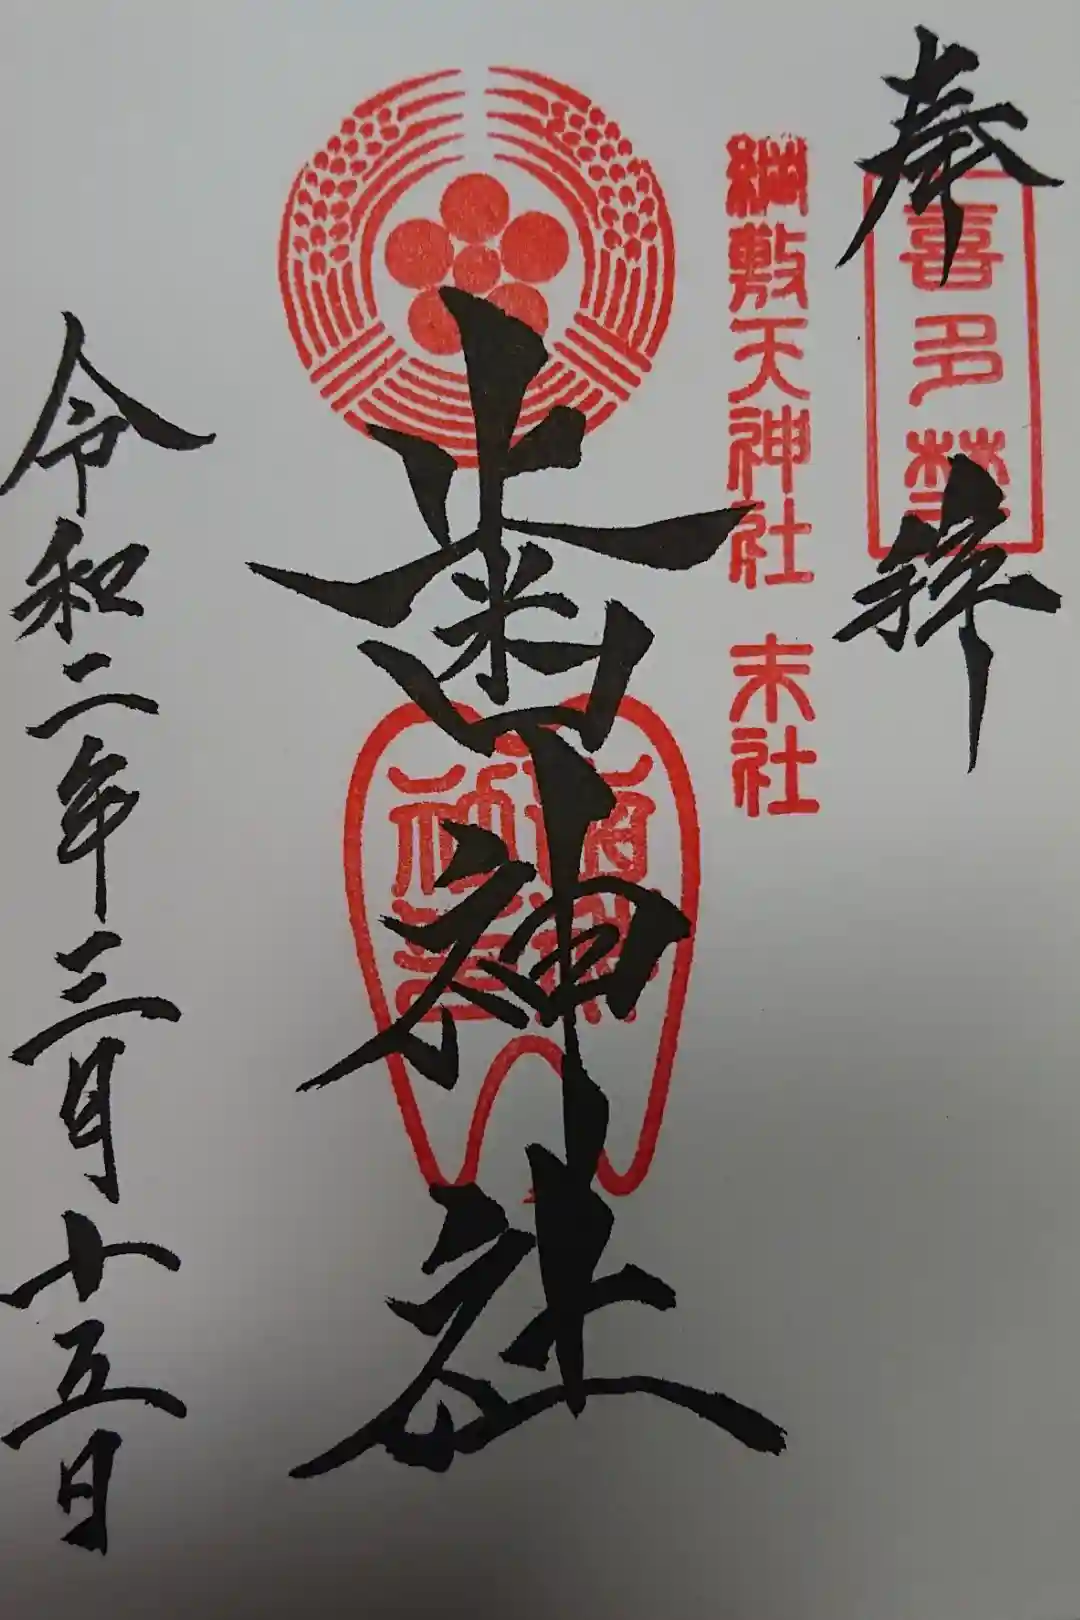 奉拝
喜多埜
綱敷天神社 末社
歯神社
令和二年三月十五日